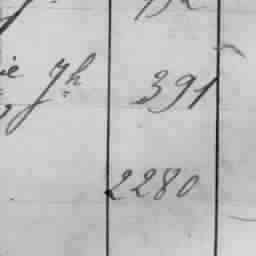 ie Jh 391
2280